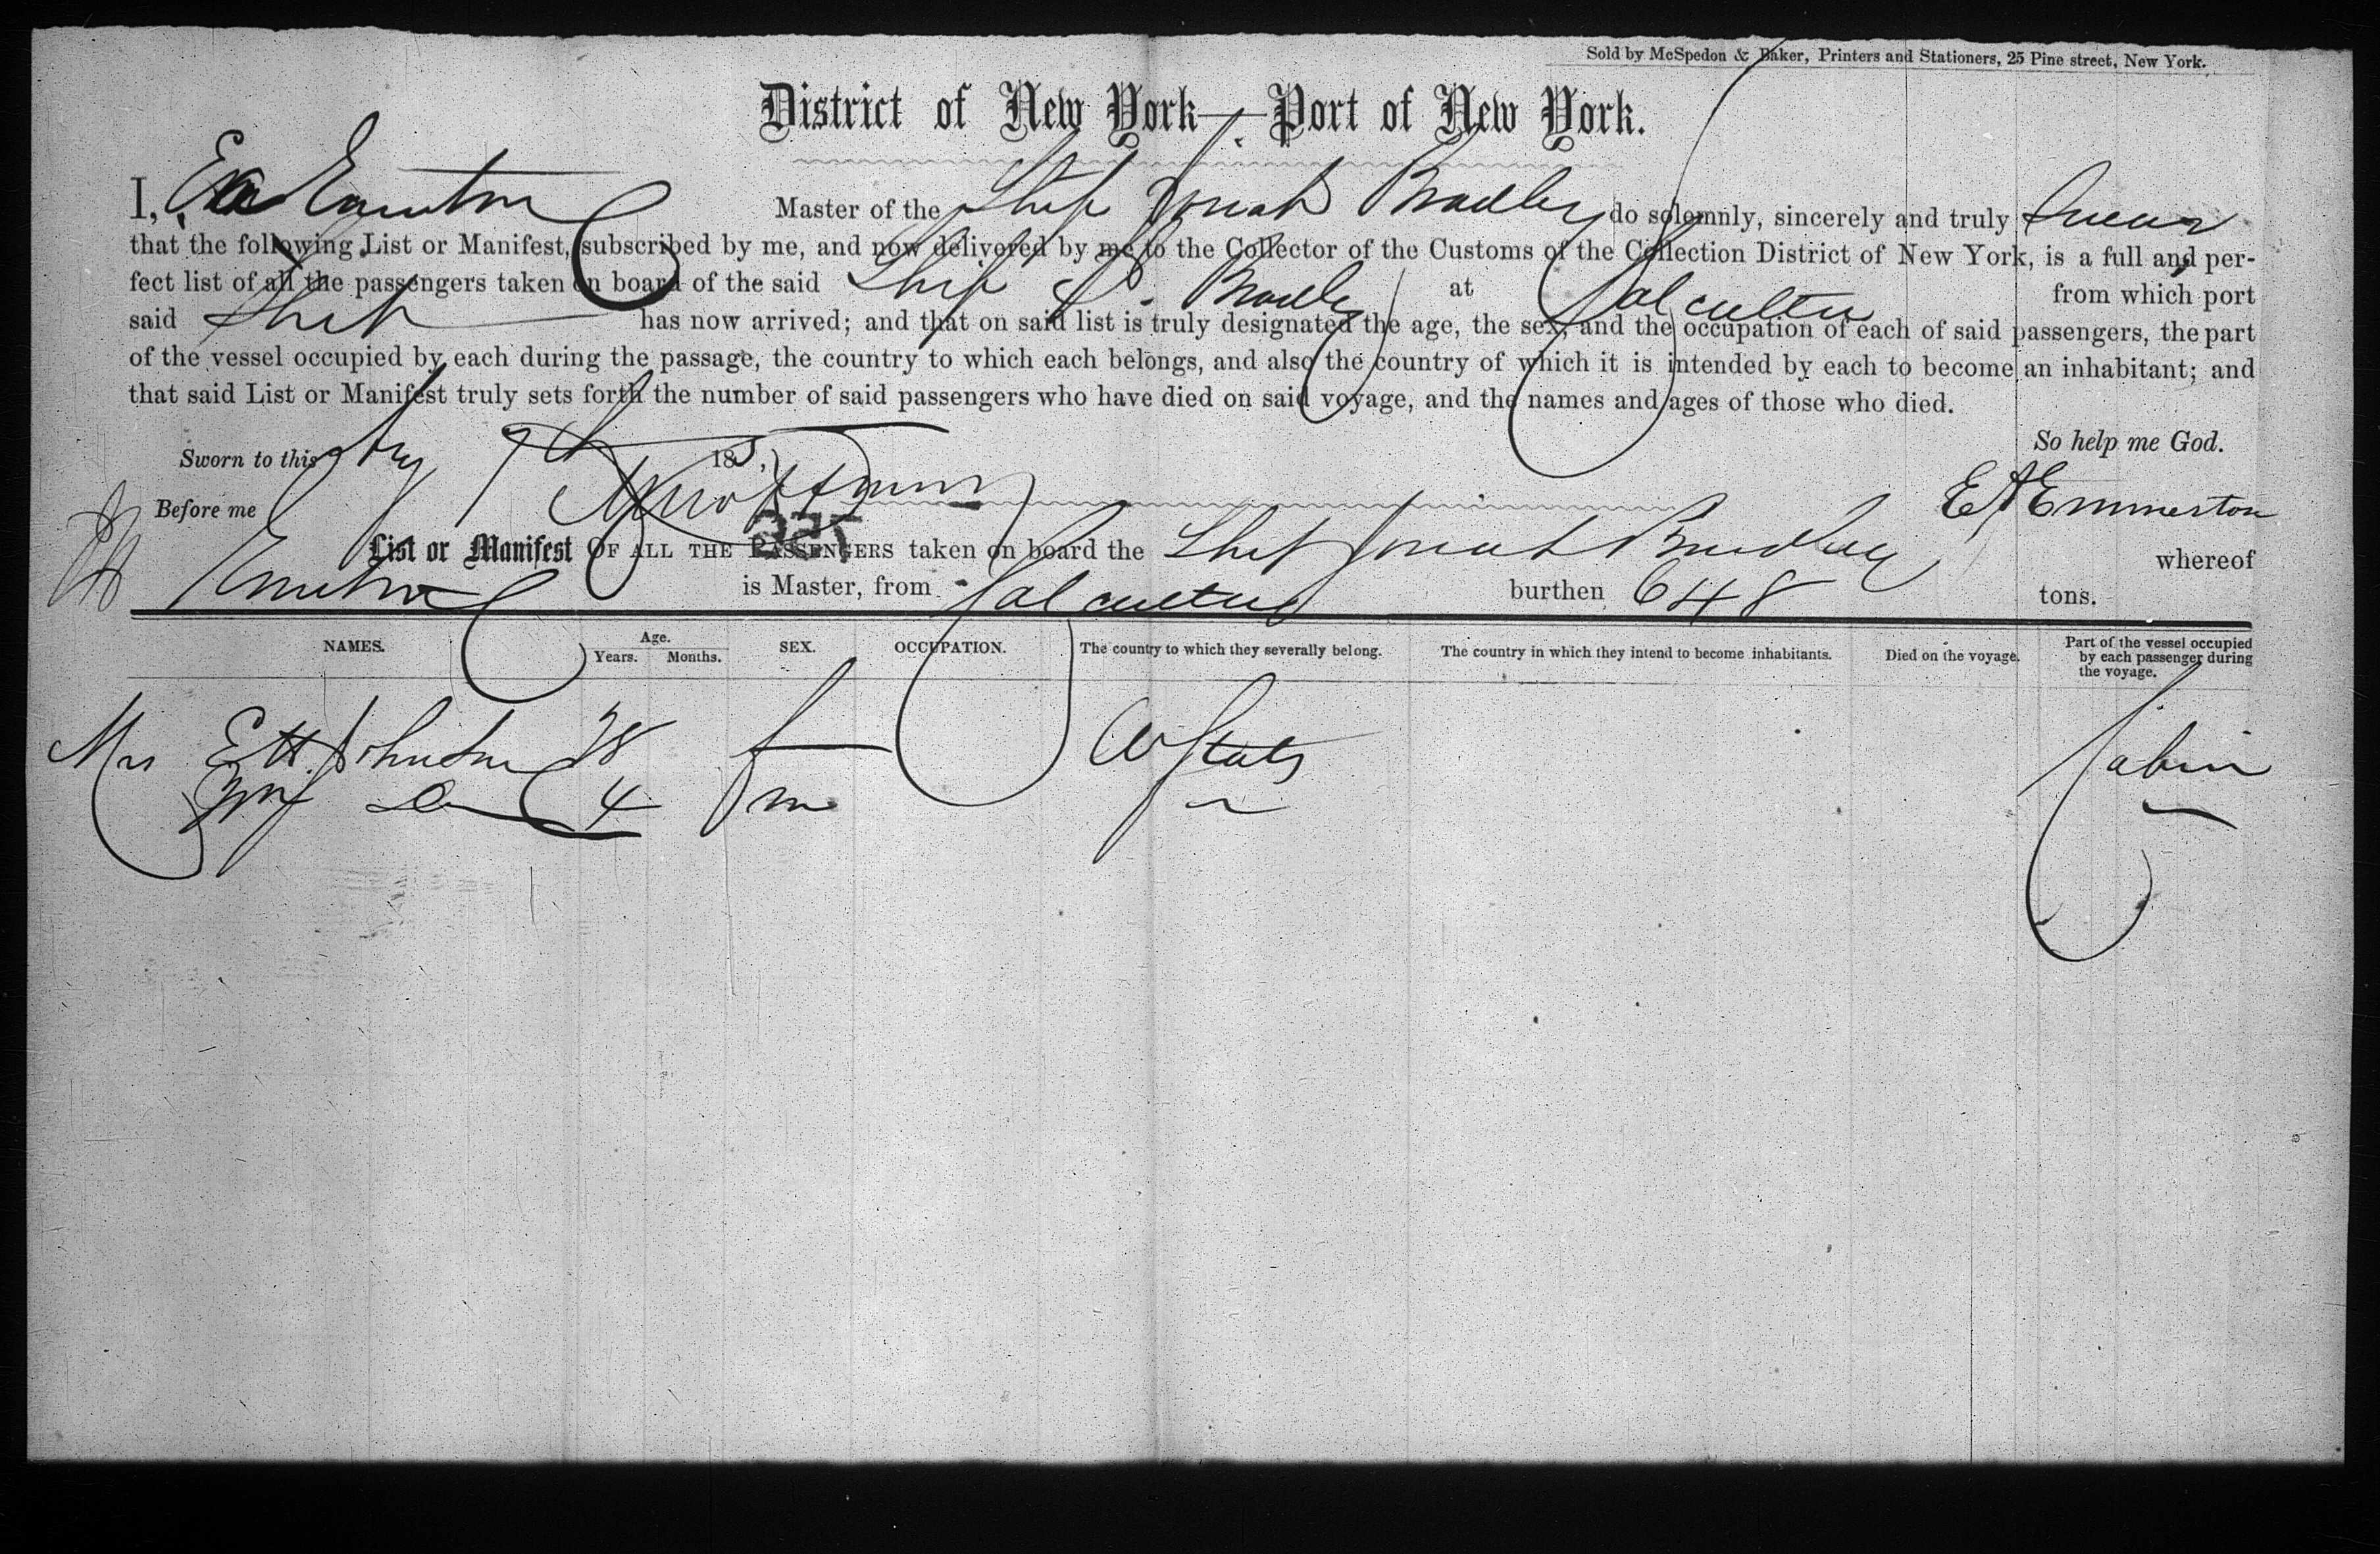 Sold by McSpedon & Baker, Printers and Stationers, 25 Pine street, New York.
District of New York—Port of New York.
I, Master of the Ship Josiah Bradley do solemnly, sincerely and truly swear
that the following List or Manifest, subscribed by me, and now delivered by me to the Collector of the Customs of the Collection District of New York, is a full and per-
fect list of all the passengers taken on board of the said Ship J. Bradley at Calcutta from which port
said Ship has now arrived; and that on said list is truly designated the age, the sex, and the occupation of each of said passengers, the part
of the vessel occupied by each during the passage, the country to which each belongs, and also the country of which it is intended by each to become an inhabitant; and
that said List or Manifest truly sets forth the number of said passengers who have died on said voyage, and the names and ages of those who died.
So help me God.
Sworn to this 185
Before me E A Emmerton
325
List or Manifest OF ALL THE PASSENGERS taken on board the Ship Josiah Bradley whereof
E A Emmerton is Master, from Calcutta burthen 648 tons.
NAMES. Age. Years. Months. SEX. OCCUPATION. The country to which they severally belong. The country in which they intend to become inhabitants. Died on the voyage. Part of the vessel occupied by each passenger during the voyage.
Mrs Johnson 28 f U States Cabin
Do 4 m